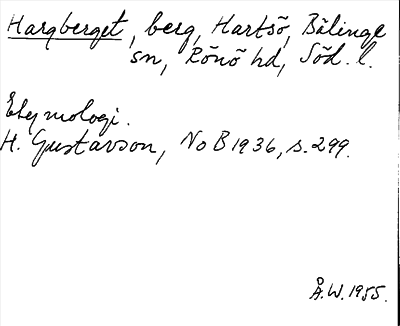 Hargberget, berg, Hartsö, Bälinge
sn, Rönö hd, Söd. l.
Etymologi.
H. Gustavson, NoB 1936, s. 299.
Å.W. 1955.